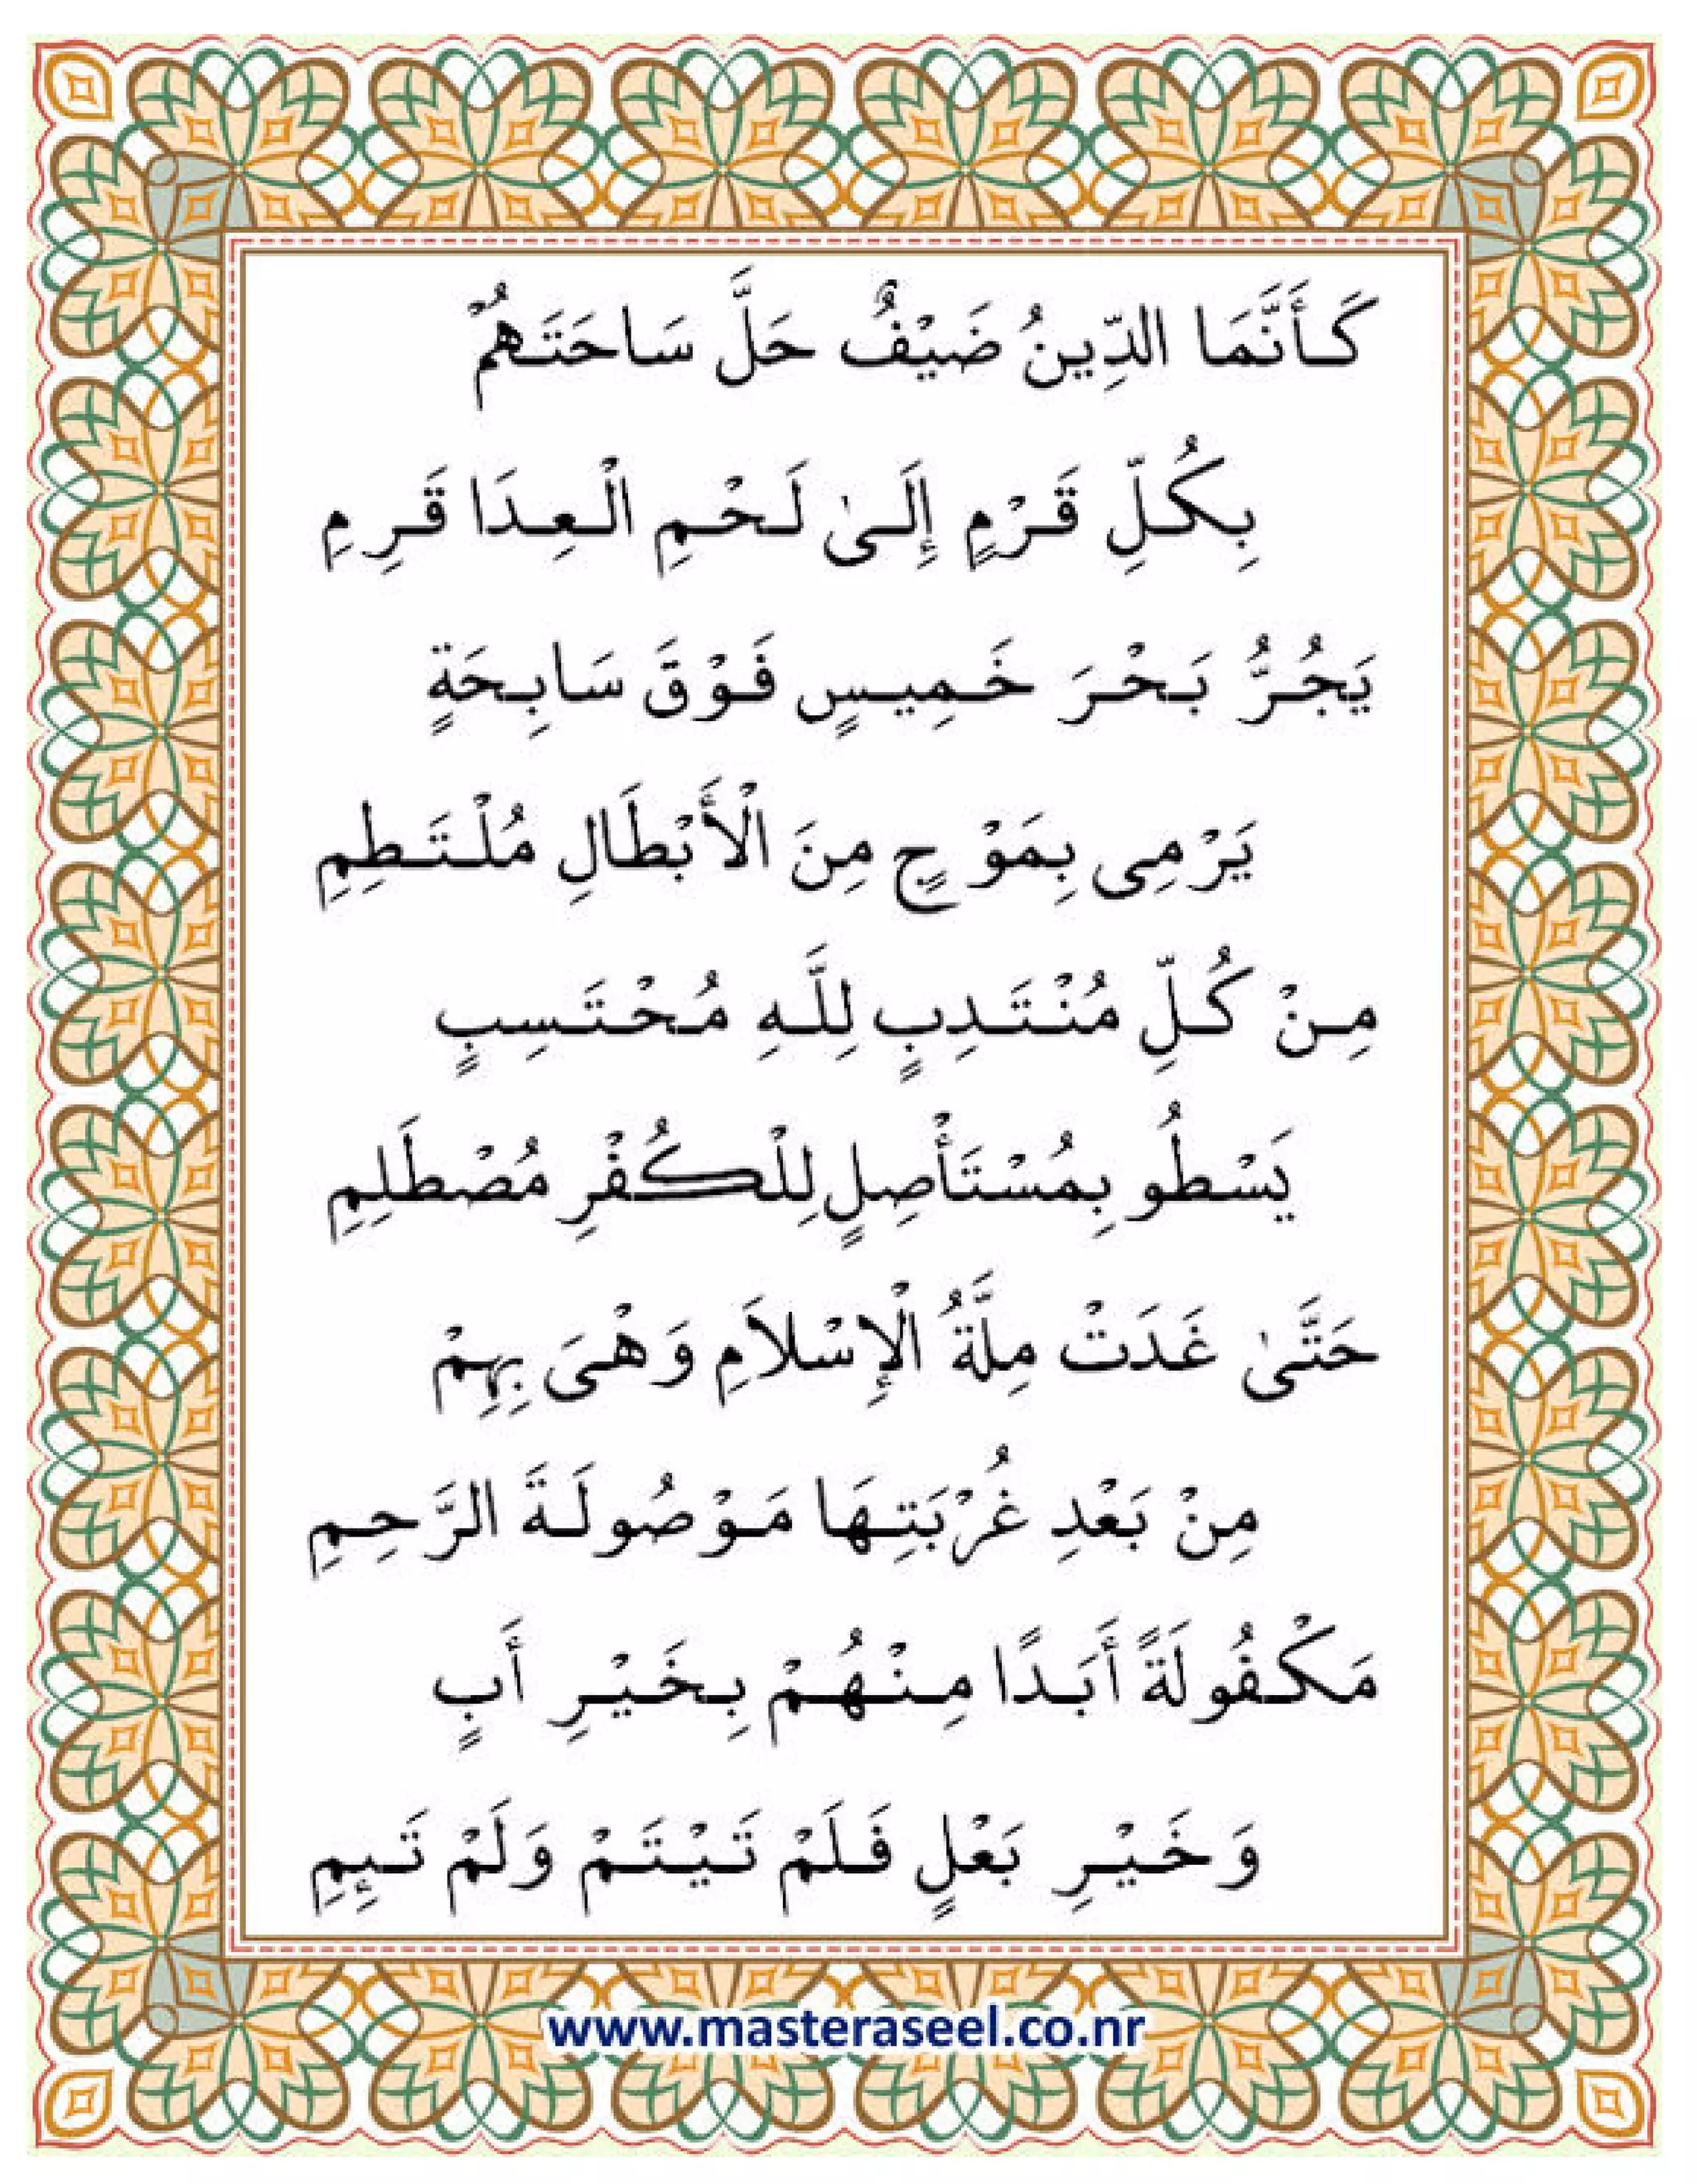 كَأَنَّمَا الدِّينُ ضَيْفٌ حَلَّ سَاحَتَهُمْ
بِكُلِّ قَرْمٍ إِلَىٰ لَحْمِ الْعِدَا قَرِمِ
يَجُرُّ بَحْرَ خَمِيسٍ فَوْقَ سَابِحَةٍ
يَرْمِى بِمَوْجٍ مِنَ الْأَبْطَالِ مُلْتَطِمِ
مِنْ كُلِّ مُنْتَدِبٍ لِلَّهِ مُحْتَسِبٍ
يَسْطُو بِمُسْتَأْصِلٍ لِلْكُفْرِ مُصْطَلِمِ
حَتَّىٰ غَدَتْ مِلَّةُ الْإِسْلَامِ وَهْىَ بِهِمْ
مِنْ بَعْدِ غُرْبَتِهَا مَوْصُولَةَ الرَّحِمِ
مَكْفُولَةً أَبَدًا مِنْهُمْ بِخَيْرِ أَبٍ
وَخَيْرِ بَعْلٍ فَلَمْ تَيْتَمْ وَلَمْ تَئِمِ
www.masteraseel.co.nr